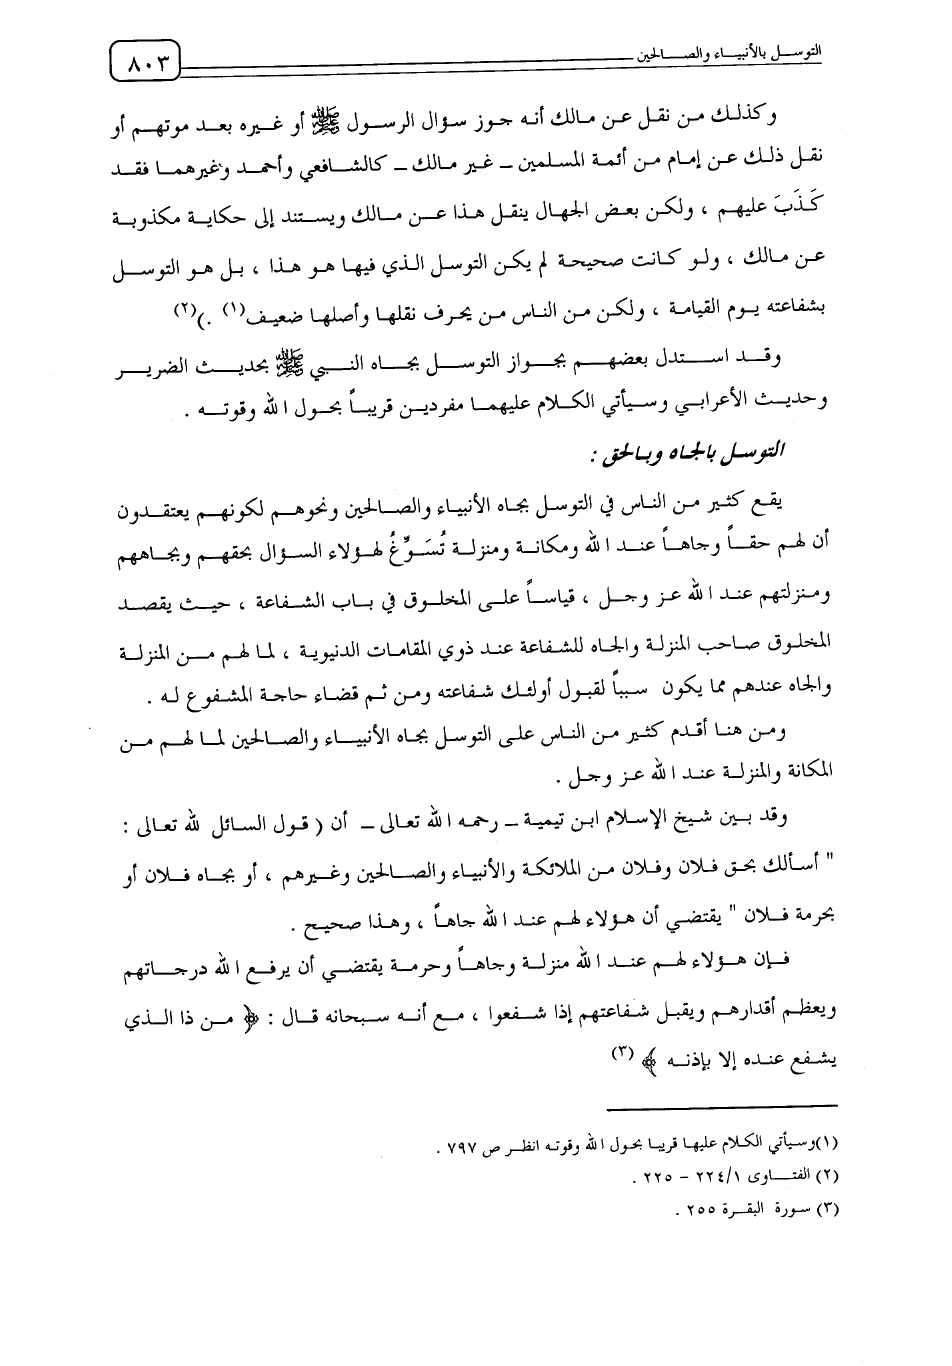 التوسل بالأنبياء والصالحين
٨٠٣
وكذلك من نقل عن مالك أنه جوز سؤال الرسول ﷺ أو غيره بعد موتهم أو
نقل ذلك عن إمام من أئمة المسلمين - غير مالك - كالشافعي وأحمد وغيرهما فقد
كَذَبَ عليهم ، ولكن بعض الجهال ينقل هذا عن مالك ويستند إلى حكاية مكذوبة
عن مالك ، ولو كانت صحيحة لم يكن التوسل الذي فيها هو هذا ، بل هو التوسل
بشفاعته يوم القيامة ، ولكن من الناس من يحرف نقلها وأصلها ضعيف(١) .)(٢)
وقد استدل بعضهم بجواز التوسل بجاه النبي ﷺ بحديث الضرير
وحديث الأعرابي وسيأتي الكلام عليهما مفردين قريباً بحول الله وقوته .
التوسل بالجاه وبالحق :
يقع كثير من الناس في التوسل بجاه الأنبياء والصالحين ونحوهم لكونهم يعتقدون
أن لهم حقاً وجاهاً عند الله ومكانة ومنزلة تُسَوِّغُ لهؤلاء السؤال بحقهم وبجاههم
ومنزلتهم عند الله عز وجل ، قياساً على المخلوق في باب الشفاعة ، حيث يقصد
المخلوق صاحب المنزلة والجاه للشفاعة عند ذوي المقامات الدنيوية ، لما لهم من المنزلة
والجاه عندهم مما يكون سبباً لقبول أولئك شفاعته ومن ثم قضاء حاجة المشفوع له .
ومن هنا أقدم كثير من الناس على التوسل بجاه الأنبياء والصالحين لما لهم من
المكانة والمنزلة عند الله عز وجل .
وقد بين شيخ الإسلام ابن تيمية - رحمه الله تعالى - أن ( قول السائل لله تعالى :
" أسألك بحق فلان وفلان من الملائكة والأنبياء والصالحين وغيرهم ، أو بجاه فلان أو
بحرمة فلان " يقتضي أن هؤلاء لهم عند الله جاهاً ، وهذا صحيح .
فإن هؤلاء لهم عند الله منزلة وجاهاً وحرمة يقتضي أن يرفع الله درجاتهم
ويعظم أقدارهم ويقبل شفاعتهم إذا شفعوا ، مع أنه سبحانه قال : ﴿ من ذا الذي
يشفع عنده إلا بإذنه ﴾ (٣)
(١)وسيأتي الكلام عليها قريبا بحول الله وقوته انظر ص ٧٩٧ .
(٢) الفتاوى ٢٢٤/١ - ٢٢٥ .
(٣) سورة البقرة ٢٥٥ .